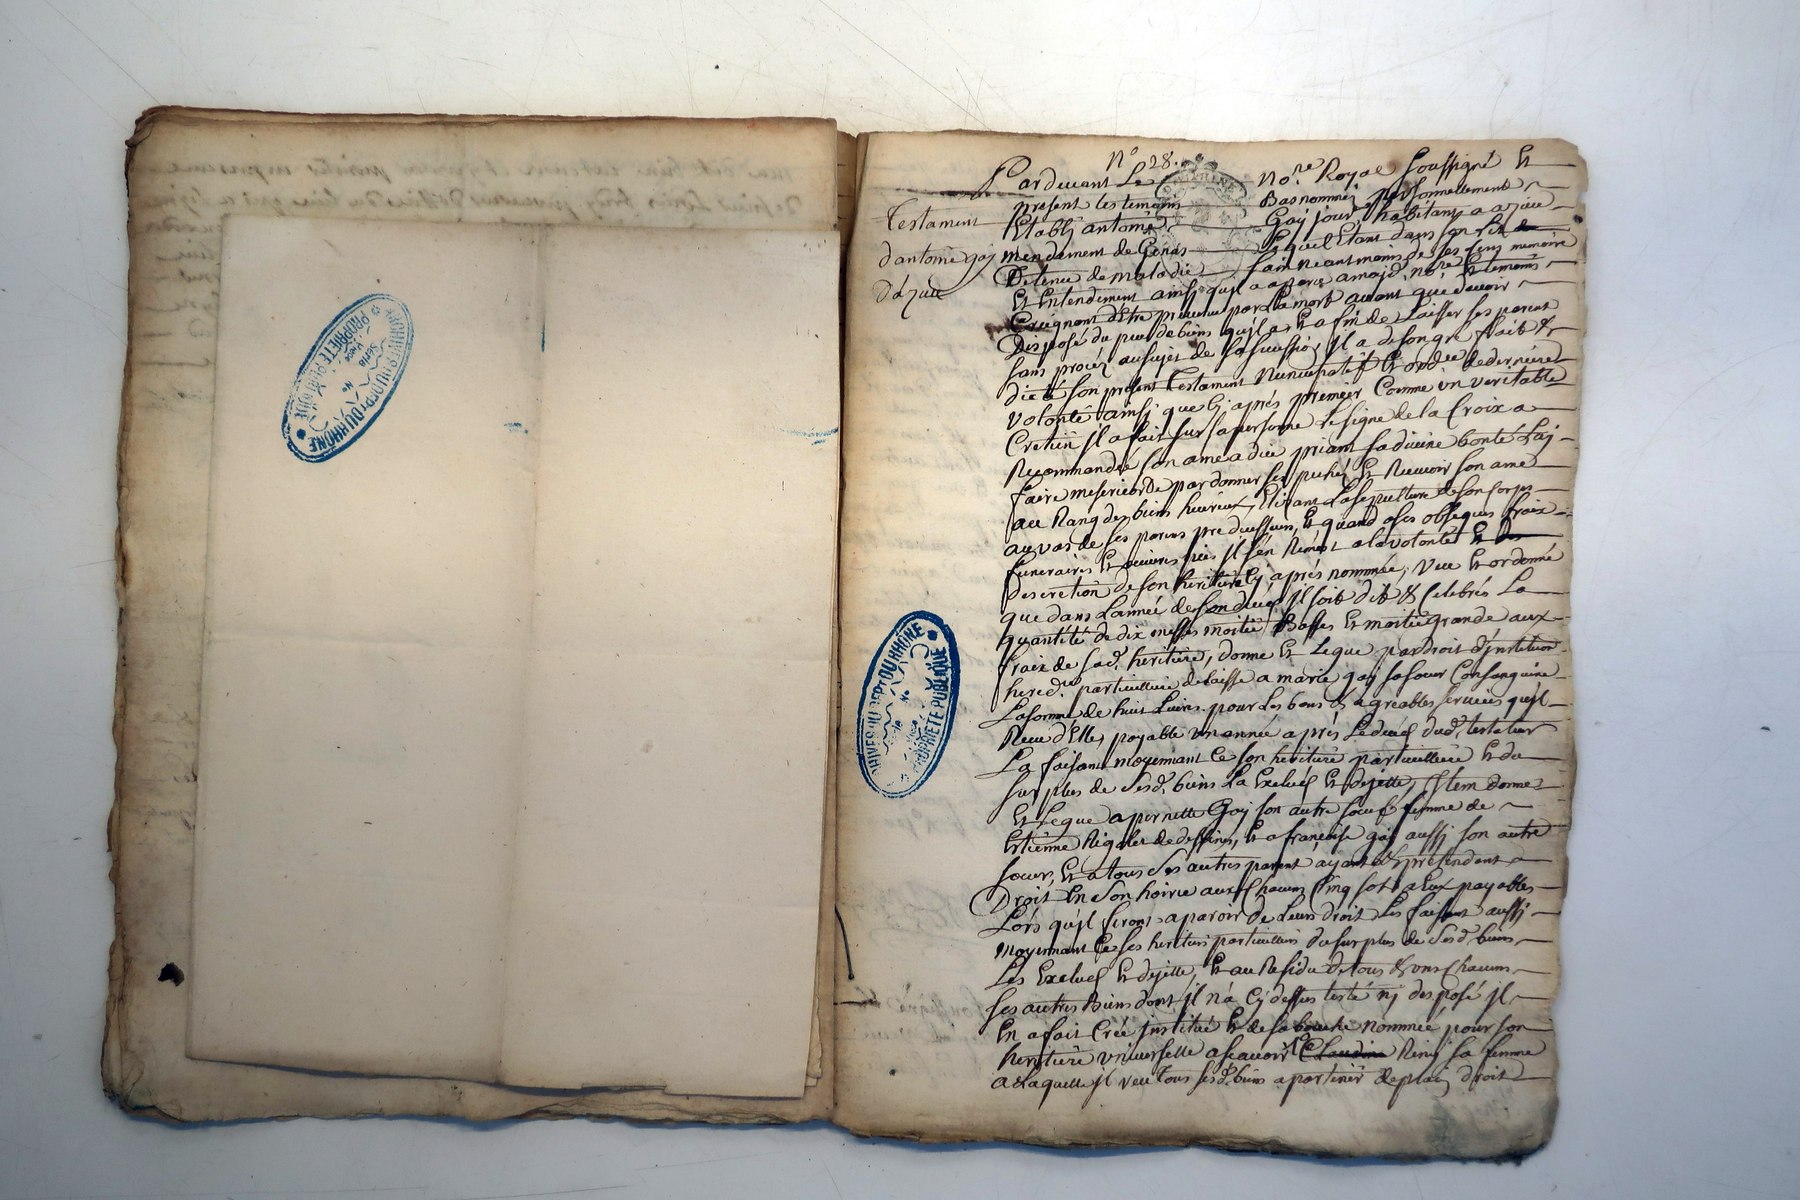 N° 28.
Testament
d'antoine gay
d'azieu
Pardevant Le No.re Royal soussigné Et
present les temoins Bas nommés personnellement
Etably antoine Gay jour.r habitant a azieu
mendement de Genas Lequel Etant dans son lit
Detenu de maladie sain neantmoins de ses sens memoire
Et Entendement ainsy qu'il a aparus a moyd. no.re Et temoins
Craignant d'Etre prevenu par La mort avant que d'avoir
Disposé du peu de biens qu'il a, Et afin de Laisser ses parens
sans procéz au sujet de sa sucession, Jl a de son gré fait &
dicté son present Testament Nuncupatif Et ord.re de derniere
volonté ainsy que Cy aprés premier Comme un veritable
Cretien Jl a fait sur sa personne Le signe de la Croix a
Recommandé son ame a dieu priant sa divine bonté Luy
faire misericorde pardonner ses pechés Et Recevoir son ame
au Rang des bien heureux, Elisant La sepulture de son Corps
au vas de ses parens predecesseurs, Et quand a ses obseques fraix
funeraires Et oeuvres pies Jl s'en Remet a la volonté Et
descretion de son heritiere Cy aprés nommée, Veut Et ordonne
que dans L'année de son decés Jl soit dit & Celebrés La
quantité de dix messes moitié Basses Et moitié grande aux
fraix de sad. heritiere, donne Et Legue par droit d'Jnstitution
hered.re particulliere delaisse a marie gay sa soeur Consanguine
La somme de huit Livres pour Les bons & agreables services qu'jl
Recu d'Elle, payable un année aprés Le decés dud. testateur
La faisant moyennant Ce son heritiere particulliere Et du
sur plus de Sesd. biens La Exclud Et dejette, Jtem donne
Et Legue a pernette Gay son autre soeur femme de
Estienne Rigolet de dessines, Et a françoise gay aussy son autre
soeur, Et a tous Ses autres parent ayant & pretendant
Droit En Son hoirie aux Chacun Cinq sols a Eux payables
Lors qu'jl feront aparoir de Leurs droit Les faisant aussy
moyennant Ce ses heritiers particulliers du surplus de Sesd. biens
Les Exclud Et dejette, Et au Residu de tous & uns Chacuns
ses autres Biens dont jl n'a Cy dessus testé ny disposé Jl
En a fait Créé Jnstitué Et de sa bouche nommée pour son
heritiere universelle a scavoir Claudine Reny sa femme
a Laquelle Jl veut tous sesd. biens apartenir de plain droit
ARCHIVES DU DEPT DU RHÔNE
PROPRIÉTÉ PUBLIQUE
Série
N°
Pièce
ARCHIVES DU DEPT DU RHÔNE
PROPRIÉTÉ PUBLIQUE
Série
N°
Pièce